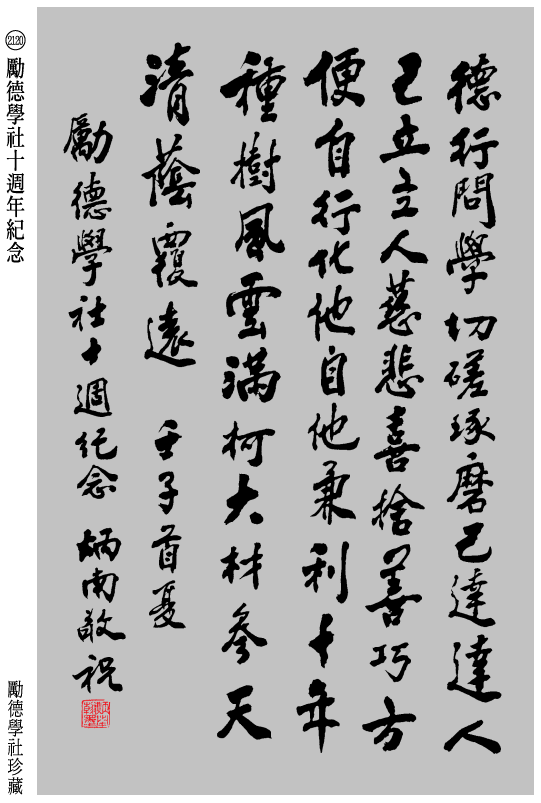 德行問學切磋琢磨己達達人
己立立人慈悲喜捨善巧方
便自行化他自他兼利十年
種樹風雲滿柯大材參天
清蔭覆遠 壬子首夏
勵德學社十週紀念 炳南敬祝
2120 勵德學社十週年紀念
勵德學社珍藏